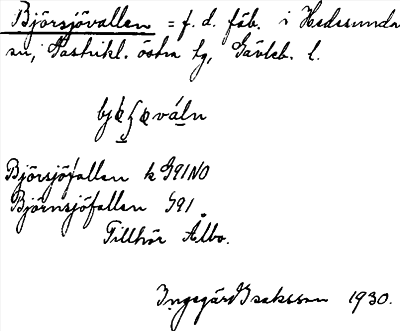 Björsjövallen = f. d. fäb. i Hedesunda
sn, Gästrikl. östra tg, Gävleb. l.
Björsjöfallen k G91NO
Björnsjöfallen G91
Tillhör Ålbo.
Ingegärd Isaksson 1930.